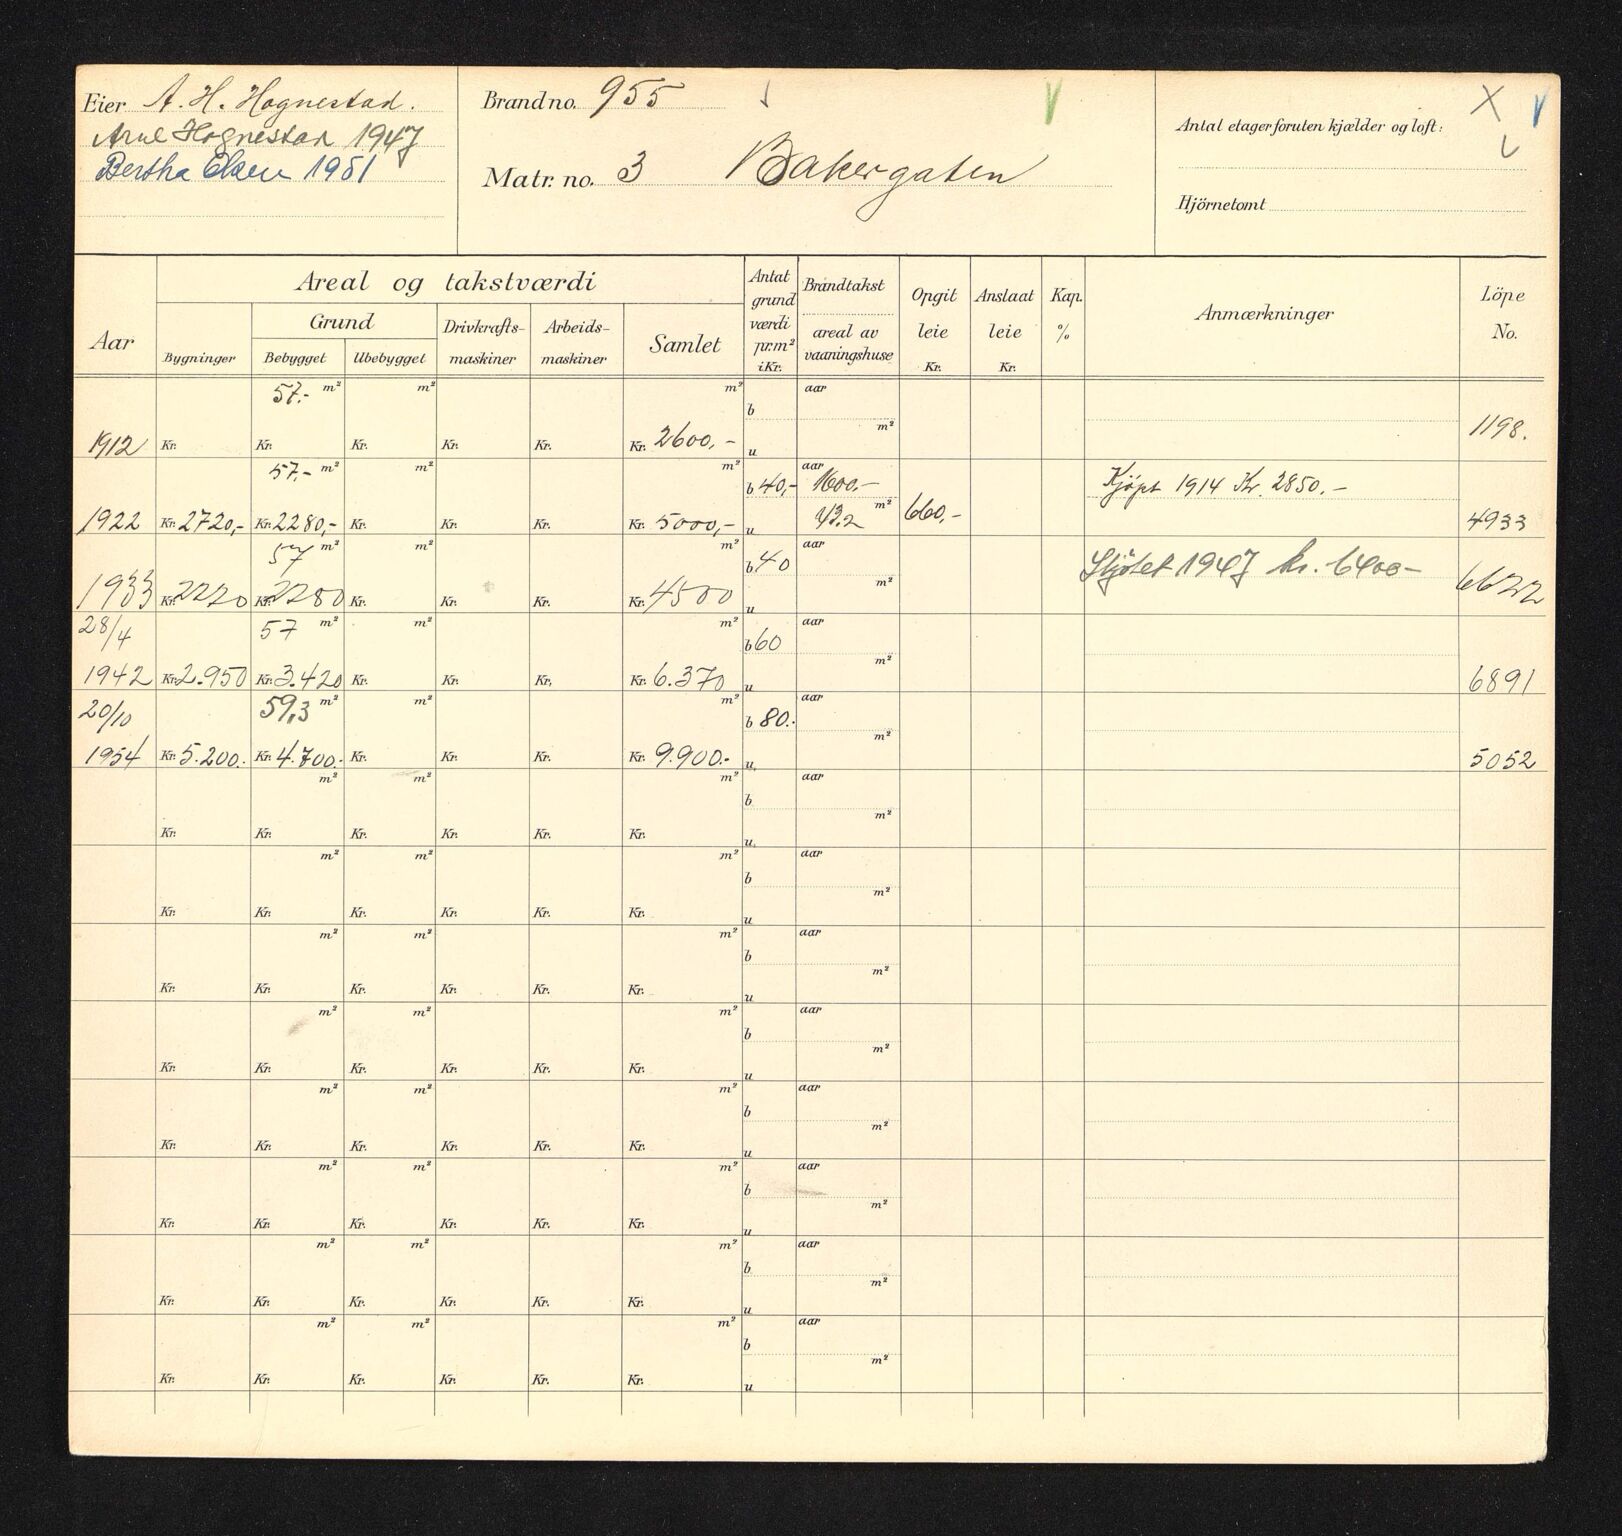 Eier A. H. Hognestad.
Arne Hognestad 1947
Bertha Olsen 1951
Brand no. 955
Matr. no. 3 Bakergaten
Antal etager foruten kjælder og loft:
Hjörnetomt
Aar
Areal og takstværdi
Bygninger
Grund
Bebygget Ubebygget
Drivkrafts-
maskiner
Arbeids-
maskiner
Samlet
Antat
grund
værdi
pr.m²
i Kr.
Brandtakst
areal av
vaaningshuse
Opgit
leie
Kr.
Anslaat
leie
Kr.
Kap.
%
Anmærkninger
Löpe
No.
57.- m² m² m² b aar m²
1912 Kr. Kr. Kr. Kr. Kr. Kr. 2600,- u 1198.
57.- m² m² m² b 40,- aar 1600.- Kjøpt 1914 Kr. 2850.-
1922 Kr. 2720,- Kr. 2280,- Kr. Kr. Kr. Kr. 5000,- u 43.2 m² 660,- 4933
57 m² m² m² b 40 aar m² Skjøtet 1947 kr. 6400-
1933 Kr. 2220 Kr. 2280 Kr. Kr. Kr. Kr. 4500 u 6622
28/4 57 m² m² m² b 60 aar m²
1942 Kr. 2.950 Kr. 3.420 Kr. Kr. Kr. Kr. 6.370 u 6891
20/10 59,3 m² m² m² b 80.- aar m²
1954 Kr. 5.200.- Kr. 4.700.- Kr. Kr. Kr. Kr. 9.900.- u 5052
m² m² m² b aar m²
Kr. Kr. Kr. Kr. Kr. Kr. u
m² m² m² b aar m²
Kr. Kr. Kr. Kr. Kr. Kr. u
m² m² m² b aar m²
Kr. Kr. Kr. Kr. Kr. Kr. u
m² m² m² b aar m²
Kr. Kr. Kr. Kr. Kr. Kr. u
m² m² m² b aar m²
Kr. Kr. Kr. Kr. Kr. Kr. u
m² m² m² b aar m²
Kr. Kr. Kr. Kr. Kr. Kr. u
m² m² m² b aar m²
Kr. Kr. Kr. Kr. Kr. Kr. u
m² m² m² b aar m²
Kr. Kr. Kr. Kr. Kr. Kr. u